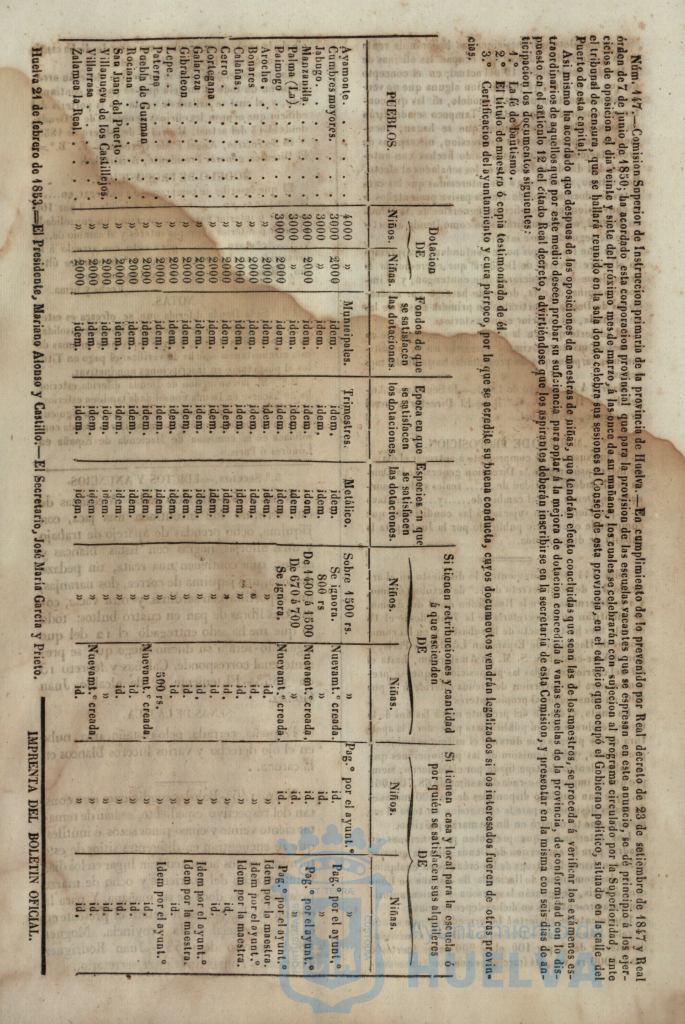 Núm. 147.—Comision Superior de Instruccion primaria de la provincia de Huelva.—En cumplimiento de lo prevenido por Real decreto de 23 de setiembre de 1847 y Real
órden de 7 de junio de 1850; ha acordado esta corporacion provincial que para la provision de las escuelas vacantes que se espresan en este anuncio, se dé principio á los ejer-
cicios de oposicion el dia veinte y siete del próximo mes de marzo, á las once de su mañana, los cuales se celebrarán con sujecion al programa circulado por la Superioridad, ante
el tribunal de censura, que se hallará reunido en la sala donde celebra sus sesiones el Consejo de esta provincia, en el edificio que ocupó el Gobierno político, situado en la calle del
Puerto de esta capital.
Asi mismo ha acordado que despues de las oposiciones de maestras de niñas, que tendrán efecto concluidas que sean las de los maestros, se proceda á verificar los exámenes es-
traordinarios de aquellos que por este medio deseen probar su suficiencia para optar á la mejora de dotacion concedida á varias escuelas de la provincia, de conformidad con lo dis-
puesto en el artículo 12 del citado Real decreto, advirtiéndose que los aspirantes deberán inscribirse en la secretaría de esta Comision, y presentar en la misma con seis dias de an-
ticipacion los documentos siguientes:
1.º La fé de bautismo.
2.º El título de maestro ó copia testimoniada de él.
3.º Certificacion del ayuntamiento y cura párroco, por la que se acredite su buena conducta, cuyos documentos vendrán legalizados si los interesados fueren de otras provin-
cias.
PUEBLOS. Dotacion DE Niños. Niñas. Fondos de que se satisfacen las dotaciones. Epoca en que se satisfacen los dotaciones. Especies en que se satisfacen las dotaciones. Si tienen retribuciones y cantidad á que ascienden DE Niños. Niñas. Si tienen casa y local para la escuela ó por quién se satisfacen sus alquileres DE Niños. Niñas.
Ayamonte. 4000 » Municipales. Trimestres. Metálico. Sobre 1500 rs. » Pag.º por el ayunt.º »
Cumbres mayores. 3000 2000 idem. idem. idem. Se ignora. Nuevamt.º creada. id. Pag.º por el ayunt.º
Jabugo. 3000 » idem. idem. idem. 800 rs » id. »
Manzanilla. » 2000 idem. idem. idem. De 1400 á 1500 Nuevamt.º creada. id. Pag.º por el ayunt.º
Palma (La). 3000 » idem. idem. idem. De 670 á 700 » id. »
Paimogo 3000 2000 idem. idem. idem. Se ignora. Nuevamt.º creada. id. Pag.º por el ayunt.º
Aroche. » 2000 idem. idem. idem. » id. » Idem por la maestra.
Bonares » 2000 idem. idem. idem. » id. » Idem por el ayunt.º
Calañas. » 2000 idem. idem. idem. » id. » Idem por la maestra.
Cerro » 2000 idem. idem. idem. » id. » id.
Cortegana. » 2000 idem. idem. idem. » id. » id.
Galaroza » 2000 idem. idem. idem. » id. » Idem por el ayunt.º
Gibraleon » 2000 idem. idem. idem. » id. » Idem por la maestra.
Lepe. » 2000 idem. idem. idem. » id. » id.
Paterna » 2000 idem. idem. idem. » 500 rs. » Idem por el ayunt.º
Puebla de Guzman » 2000 idem. idem. idem. » Nuevamt.º creada. » id.
Rociana » 2000 idem. idem. idem. » id. » id.
San Juan del Puerto » 2000 idem. idem. idem. » id. » id.
Villanueva de los Castillejos. » 2000 idem. idem. idem. » » » id.
Villarrasa » 2000 idem. idem. idem. » Nuevamt.º creada. » id.
Zalamea la Real. » 2000 idem. idem. idem. » id. » id.
Huelva 21 de febrero de 1853.—El Presidente, Mariano Alonso y Castillo.—El Secretario, José María García y Prieto.
IMPRENTA DEL BOLETIN OFICIAL.
Ayuntamiento de
HUELVA